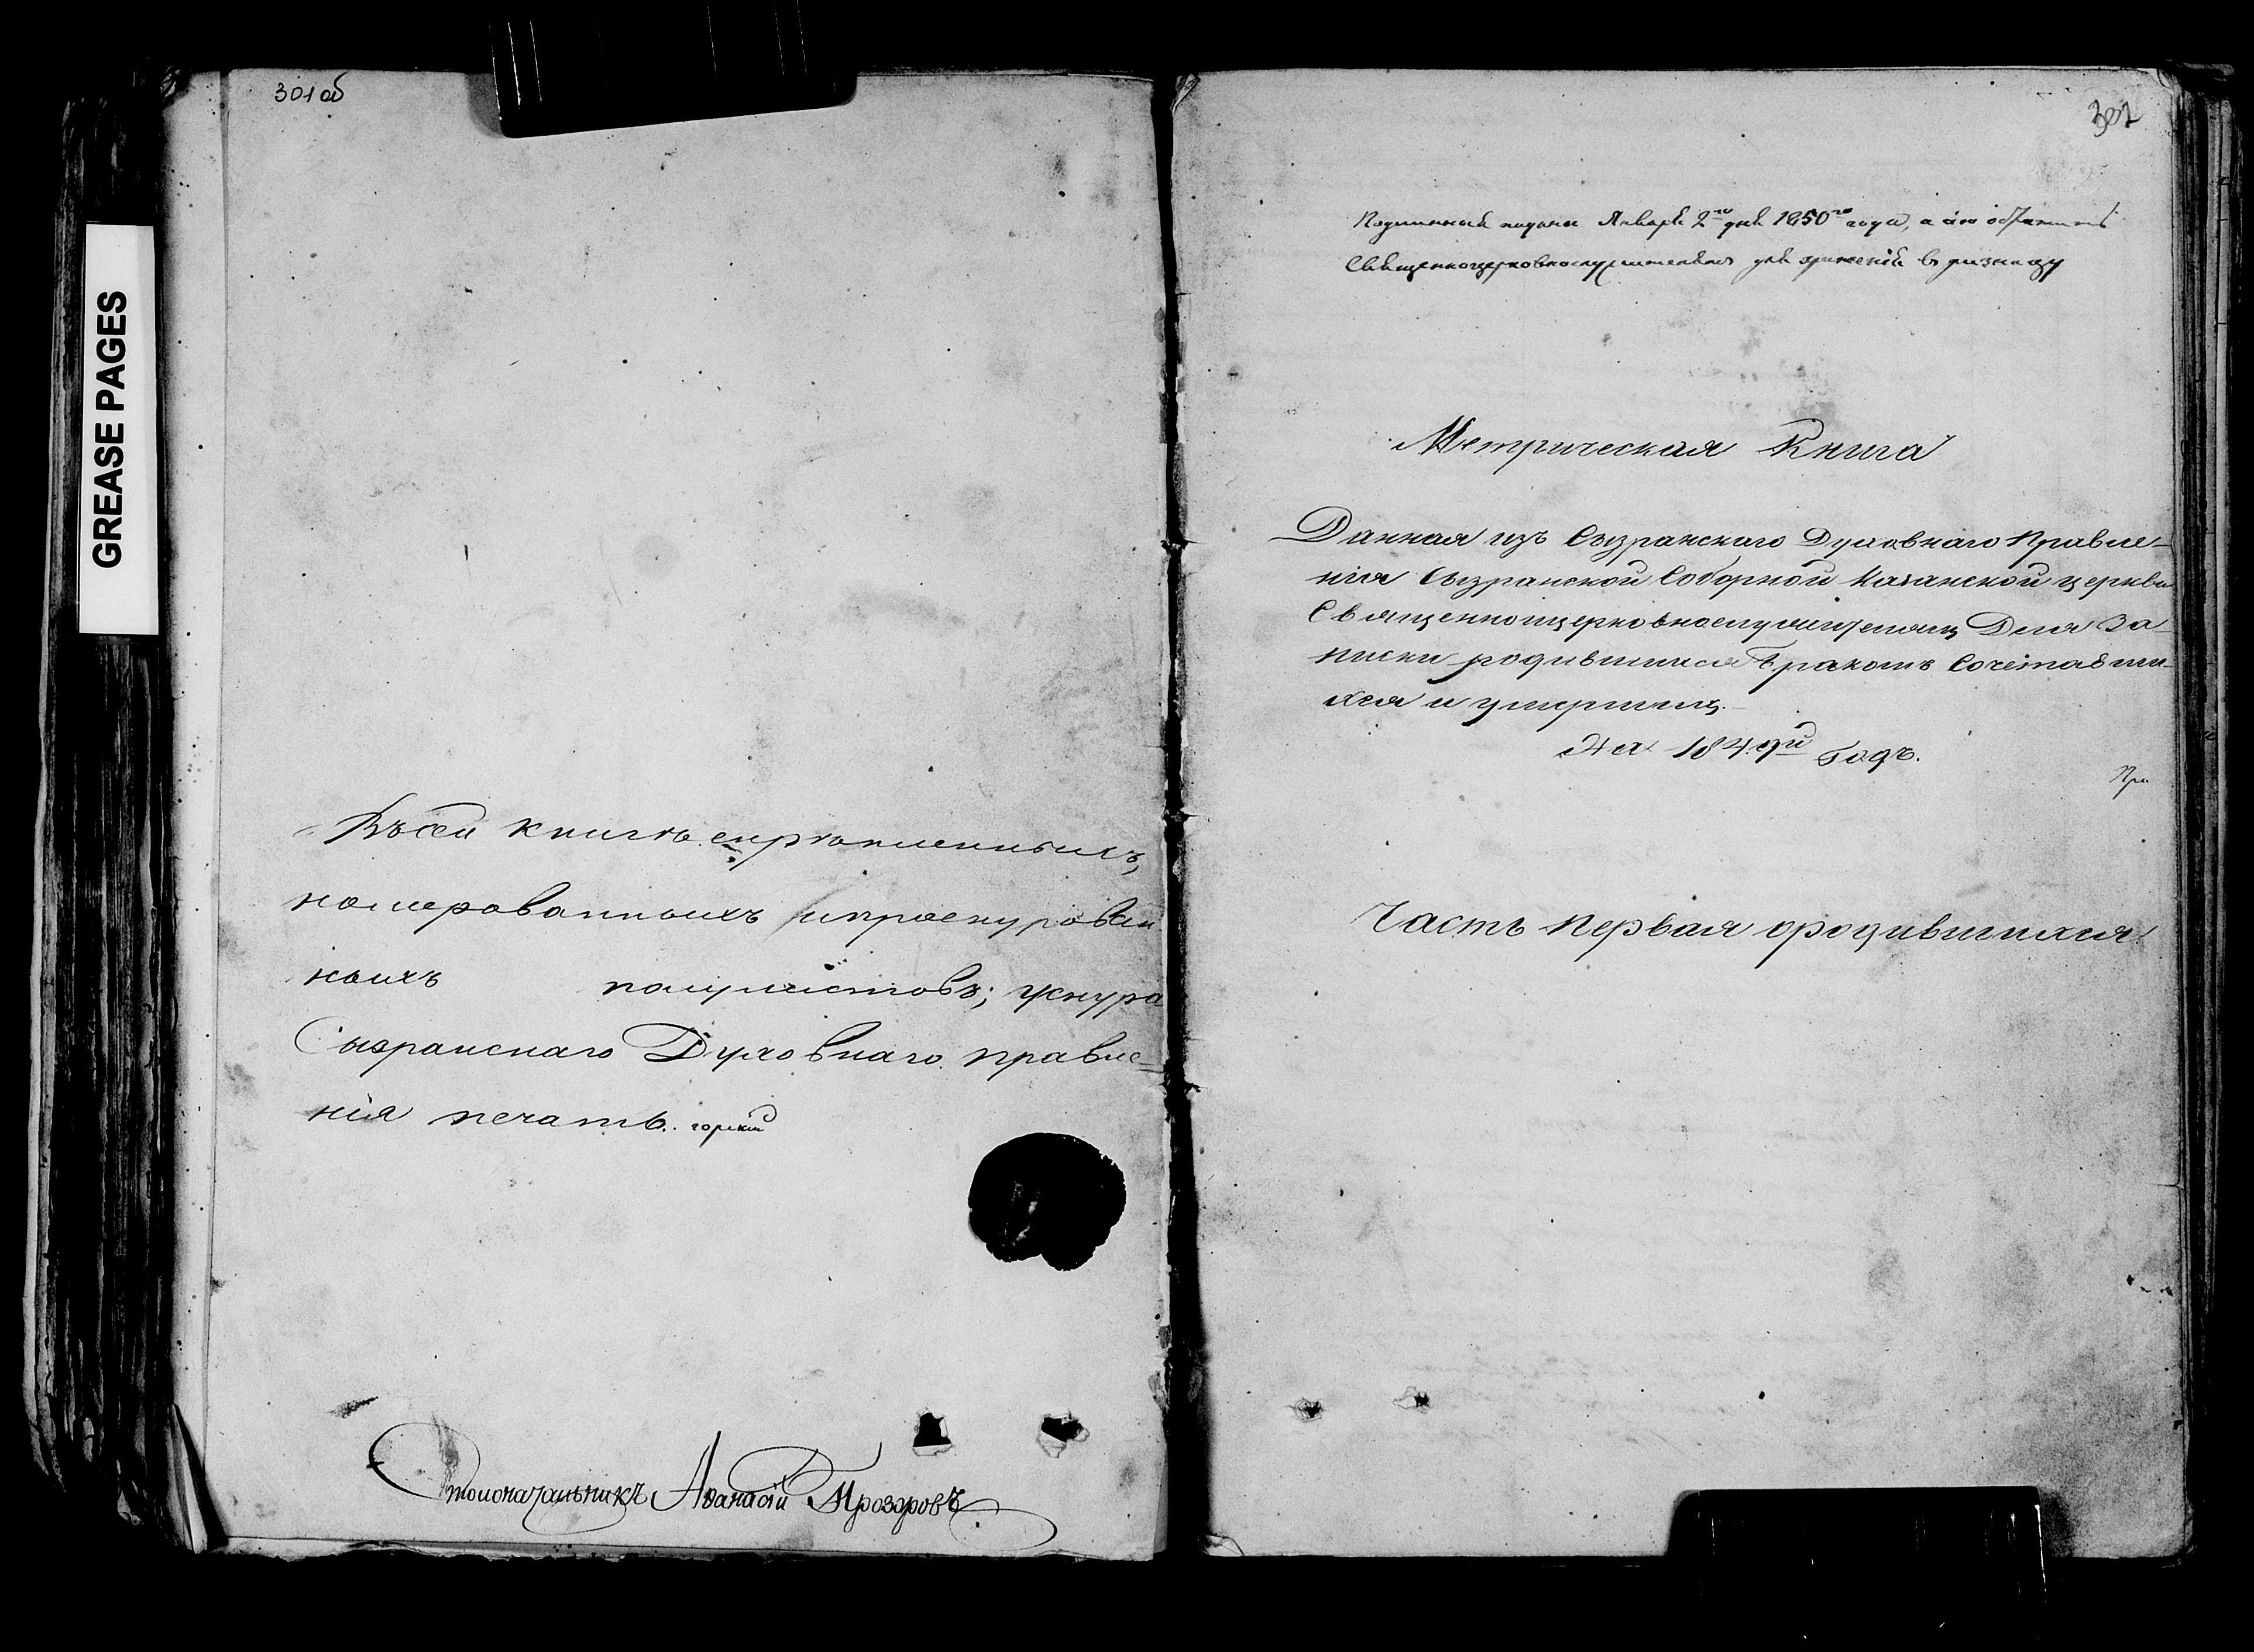 GREASE PAGES
301 об
Въ сей книгѣ скрѣпленныхъ,
номерованныхъ и прошнурован
ныхъ полулистовъ; у шнура
Сызранскаго Духовнаго правле-
нія печать.
Столоначальникъ Аѳанасій Прозоровъ
302
поданы Января 2го дня 1850го года, а сію
Священноцерковнослужителямъ для храненія в ризницу
Метрическая Книга
Данная изъ Сызранскаго Духовнаго Правле-
нія Сызранской Соборной Казанской церкви
Священноцерковнослужителямъ Для За-
писки родившихся Бракомъ Сочетавши-
хся и умершихъ.
На 1849й Годъ.
Часть первая о родившихся